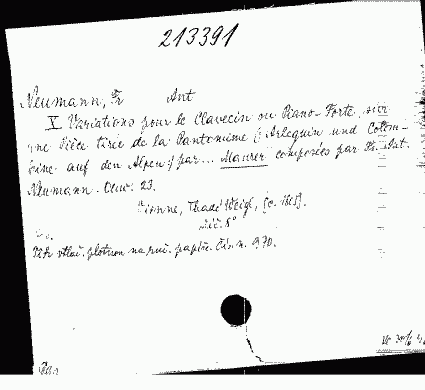 213391
Neumann, Fr Ant
X Variations pour le Clavecin ou Piano-Forte sur
une Piéce tirée de la Pantomime (: Arlequin und Colom-
bine auf den Alpen :) par... Maurer composées par Fr. Ant.
Neumann. Oeuv. 23.
Vienne, Thadé Weigl, [c. 1803].
8°
Tisk vtlač. plotnou na ruč. papíře. Čís. n. 970.